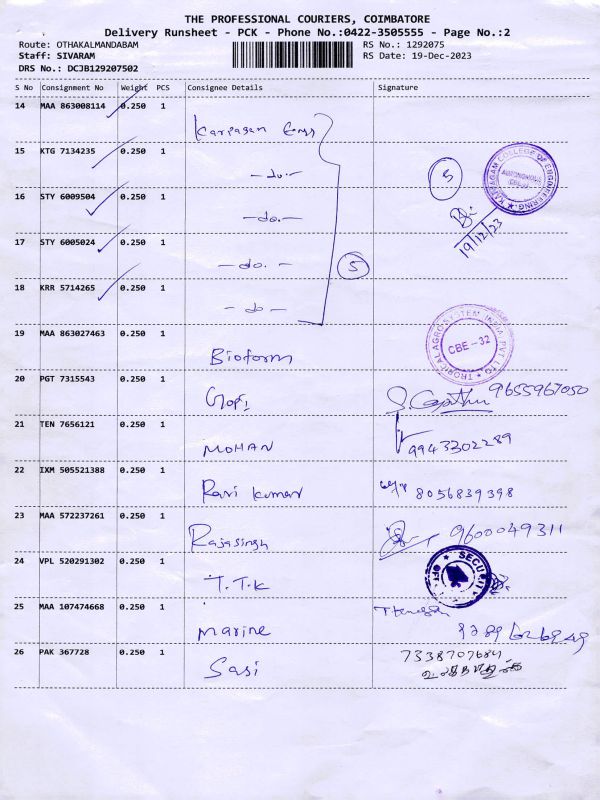 THE PROFESSIONAL COURIERS, COIMBATORE
Delivery Runsheet - PCK - Phone No.:0422-3505555 - Page No.:2
Route: OTHAKALMANDABAM RS No.: 1292075
Staff: SIVARAM RS Date: 19-Dec-2023
DRS No.: DCJB129207502
S No Consignment No Weight PCS Consignee Details Signature
14 MAA 863008114 0.250 1 Karpagam Engg
15 KTG 7134235 0.250 1 -do.-
5
KARPAGAM COLLEGE OF ENGINEERING
AUTONOMOUS
16 STY 6009504 0.250 1 -do.-
19/12/23
17 STY 6005024 0.250 1 -do. -
5
18 KRR 5714265 0.250 1 - do -
19 MAA 863027463 0.250 1 Bioform
TROPICAL AGRO SYSTEM INDIA PVT LTD
CBE-32
20 PGT 7315543 0.250 1 Gopi 9655967050
21 TEN 7656121 0.250 1 MOHAN 9943302289
22 IXM 505521388 0.250 1 Ravi kumar 8056839398
23 MAA 572237261 0.250 1 Rajasingh 9600049311
24 VPL 520291302 0.250 1 T.T.K
SECURITY
25 MAA 107474668 0.250 1 Marine
26 PAK 367728 0.250 1 Sasi 7338707684